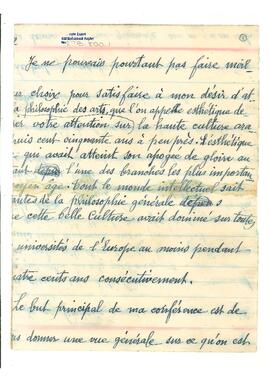 Je ne pouvais pourtant pas faire meil
choix pour satisfaire à mon désir d'at
philosophie des arts, que l'on appelle esthétique de
er votre attention sur la haute culture ara
cent cinquante ans à peu près. L'esthétique
qui avait atteint son apogée de gloire au
l'une des branches les plus importan
moyen âge. Tout le monde intellectuel sait
de la philosophie générale
cette belle Culture avait dominé sur toutes
universités de l'Europe au moins pendant
atre cents ans consécutivement.
Le but principal de ma conférence est de
us donner une vue générale sur ce qu'on est